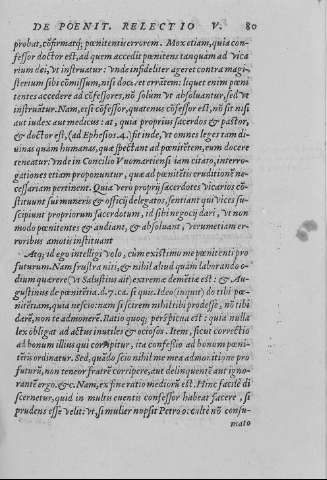 DE POENIT. RELECTIO V. 80
probat, cõfirmatq; pœnitentis errorem. Mox etiam, quia con-
fessor doctor est, ad quem accedit pœnitens tanquam ad Vica
rium dei, vt instruatur: vnde infideliter ageret contra magi-
sterium sibi cõmissum, nisi doceat errãtem: liquet enim pœni
tentes accedere ad cõfessores, nõ solùm vt absoluantur, sed vt
instruãtur. Nam, etsi cõfessor, quatenus cõfessor est, nõ sit nisi
aut iudex aut medicus: at, quia proprius sacerdos & pastor,
& doctor est, (ad Ephesios. 4.) fit inde, vt omnes leges tam di-
uinas quàm humanas, quæ spectant ad pœnitẽtem, eum docere
teneatur: Vnde in Concilio Vuormatiensi iam citato, interro-
gationes etiam proponuntur, quæ ad pœnitẽtis eruditionẽ ne-
cessariam pertinent. Quia verò proprij sacerdotes vicarios cõ-
stituunt sui muneris & officij delegatos, sentiant qui vices su-
scipiunt propriorum sacerdotum, id sibi negocij dari, vt non
modo pœnitentes & audiant, & absoluant, verumetiam er-
roribus amotis instituant
Atq; id ego intelligi volo, cùm existimo me pœnitenti pro
futurum. Nam frustra niti, & nihil aliud quàm laborando o-
dium quærere (vt Salustius ait) extremæ demẽtiæ est: & Au-
gustinus de pœnitẽtia. d. 7. ca. si quis. Ideo (inquit) do tibi pœ-
nitẽtiam, quia nescio: nam si scirem nihil tibi prodesse, nõ tibi
darẽ, non te admonerẽ. Ratio quoq; perspicua est: quia nulla
lex obligat ad actus inutiles & ociosos. Item, sicut correctio
ad bonum illius qui corripitur, ita confessio ad bonum pœni-
tẽtis ordinatur. Sed, quãdo scio nihil me mea admonitione pro
futurũ, non teneor fratrẽ corripere, aut delinquentẽ aut igno-
rantẽ ergo. &c. Nam, ex fine ratio mediorũ est. Hinc facilè di
scernetur, quid in multis euentis confessor habeat facere, si
prudens esse velit: vt, si mulier nupsit Petro occultè nõ consu-
mato